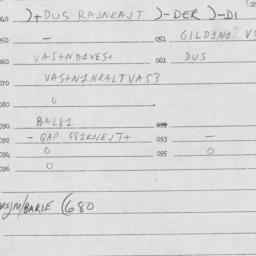 060 )+DUS RAJNKAJT )-DER )-DI
050 — 051 GILD1N1
060 VAS+ND1VES+ 061 DUS
070 VAS+N1NKALTVAS3
080 0
090 BAL81
092 - QAP G81KNEJT+ 093 —
094 0 095 0
096 0
/BARIE (680